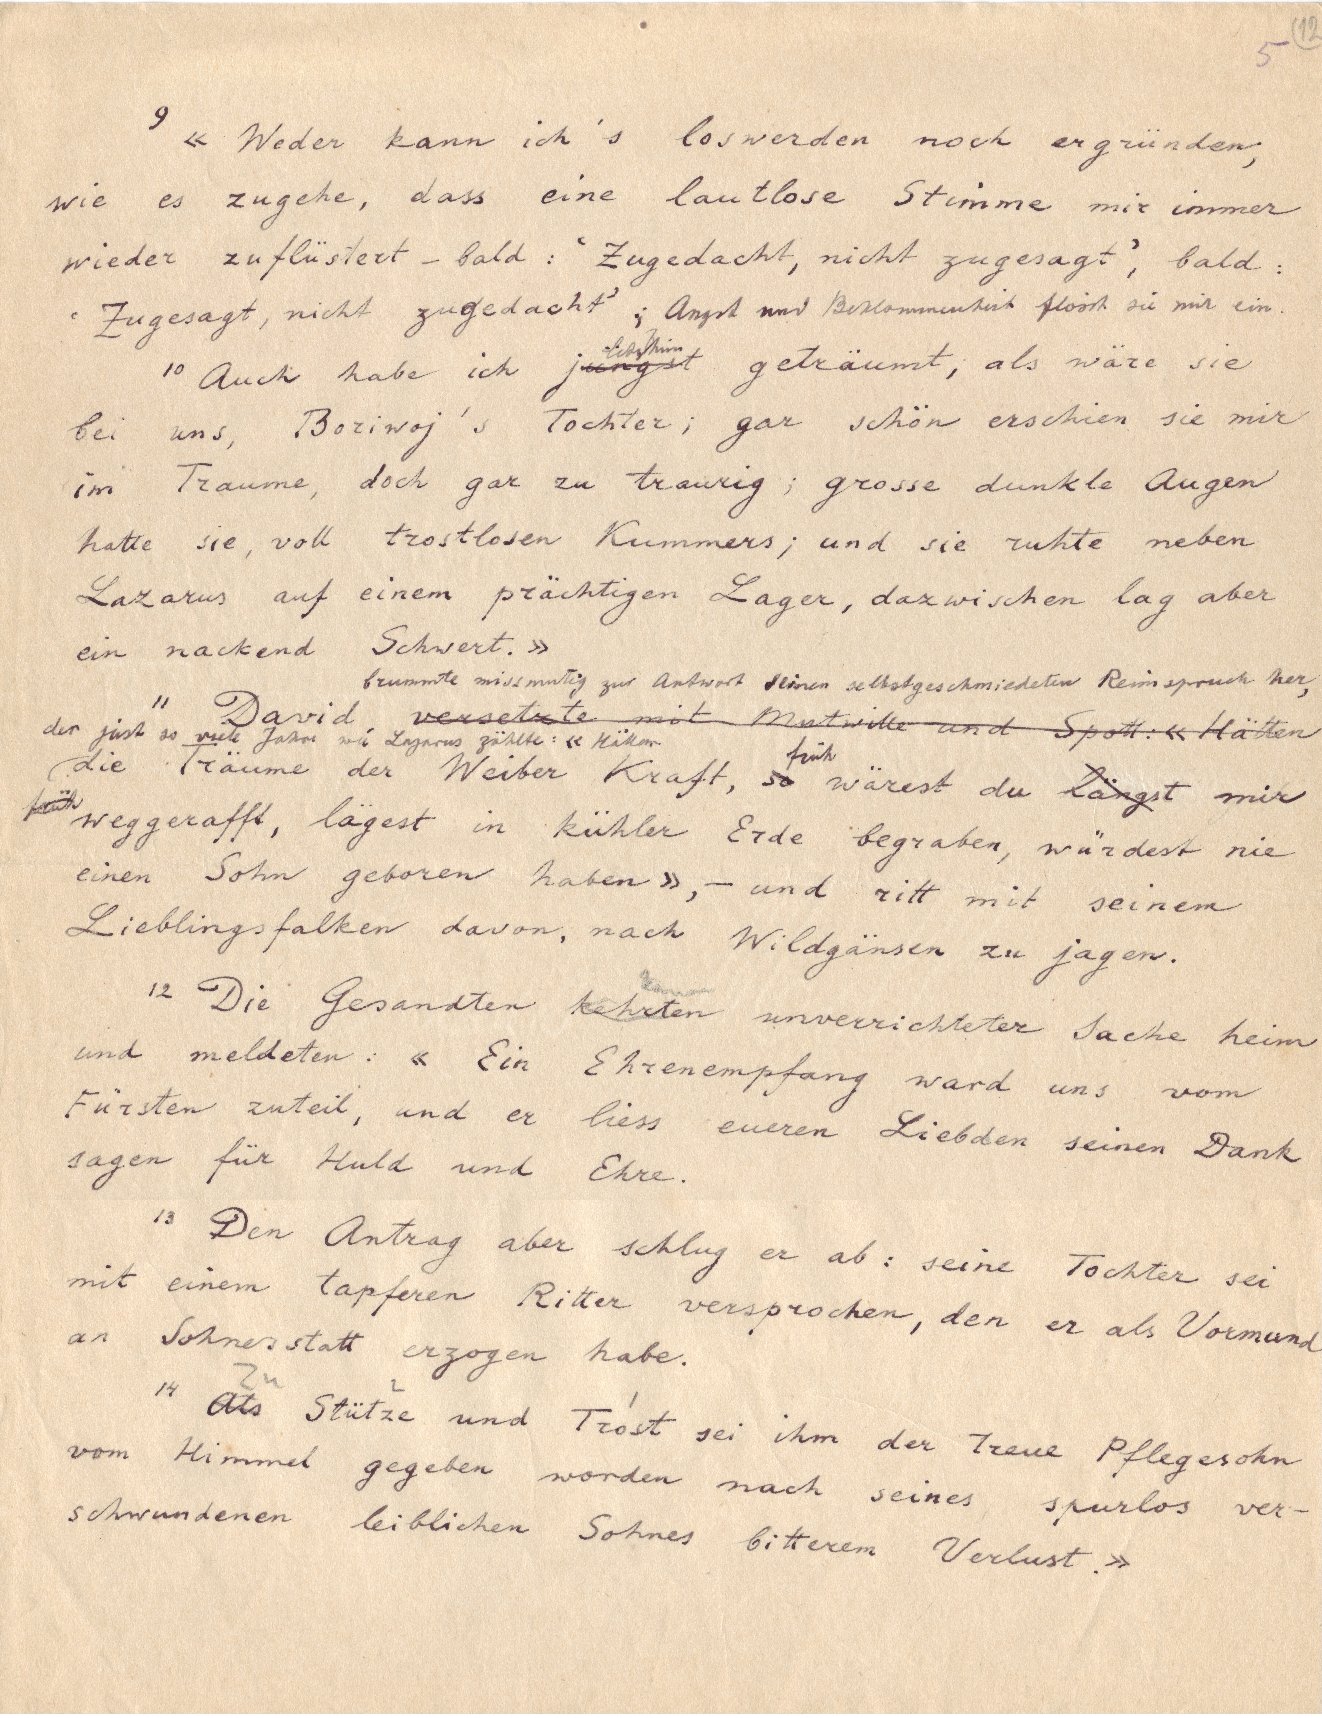 5 (12
9 « Weder kann ich's loswerden noch ergründen,
wie es zugehe, dass eine lautlose Stimme mir immer
wieder zuflüstert – bald: ‘Zugedacht, nicht zugesagt’, bald:
‘Zugesagt, nicht zugedacht’; Angst und Beklommenheit flösst sie mir ein.
letzthin
10 Auch habe ich jüngst geträumt, als wäre sie
bei uns, Boriwoj's Tochter; gar schön erschien sie mir
im Traume, doch gar zu traurig; grosse dunkle Augen
hatte sie, voll trostlosen Kummers; und sie ruhte neben
Lazarus auf einem prächtigen Lager, dazwischen lag aber
ein nackend Schwert. »
brummte missmutig zur Antwort seinen selbstgeschmiedeten Reimspruch her,
11 David versetzte mit Mutwille und Spott: « Hätten
der just so viele Jahre wie Lazarus zählte: « Hätten
früh
die Träume der Weiber Kraft, so wärest du längst mir
früh weggerafft, lägest in kühler Erde begraben, würdest nie
einen Sohn geboren haben », – und ritt mit seinem
Lieblingsfalken davon, nach Wildgänsen zu jagen.
12 Die Gesandten kehrten unverrichteter Sache heim
und meldeten: « Ein Ehrenempfang ward uns vom
Fürsten zuteil, und er liess eueren Liebden seinen Dank
sagen für Huld und Ehre.
13 Den Antrag aber schlug er ab: seine Tochter sei
mit einem tapferen Ritter versprochen, den er als Vormund
an Sohnesstatt erzogen habe.
Zu 2 1
14 Als Stütze und Trost sei ihm der treue Pflegesohn
vom Himmel gegeben worden nach seines spurlos ver-
schwundenen leiblichen Sohnes bitterem Verlust. »